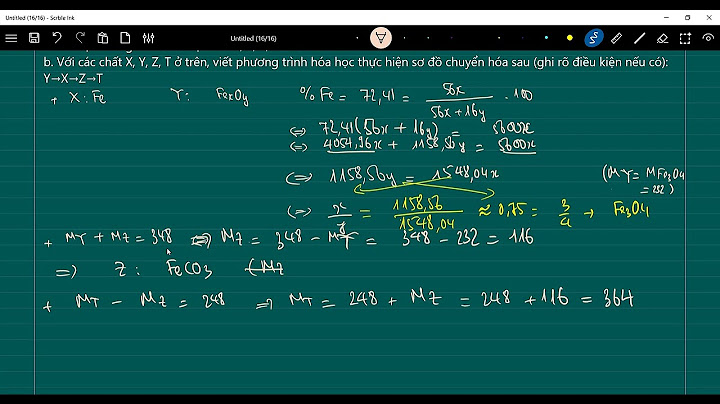 Untitled (16/16) - Scrble Ink
Untitled (16/16)
b. Với các chất X, Y, Z, T ở trên, viết phương trình hóa học thực hiện sơ đồ chuyển hóa sau (ghi rõ điều kiện nếu có):
Y→X→Z→T
+ X : Fe Y : FexOy %Fe = 72,41 = 56x / (56x + 16y) . 100
⇔ 72,41(56x + 16y) = 5600x
⇔ 4054,96x + 1158,56y = 5600x
⇔ 1158,56y = 1548,04x (MY = MFe3O4 = 232)
⇔ x/y = 1158,56 / 1548,04 ≈ 0,75 = 3/4 → Fe3O4
+ MY + MZ = 348 ⇔ MZ = 348 - MY = 348 - 232 = 116
⇒ Z : FeCO3 (MZ
+ MT - MZ = 248 ⇒ MT = 248 + MZ = 248 + 116 = 364